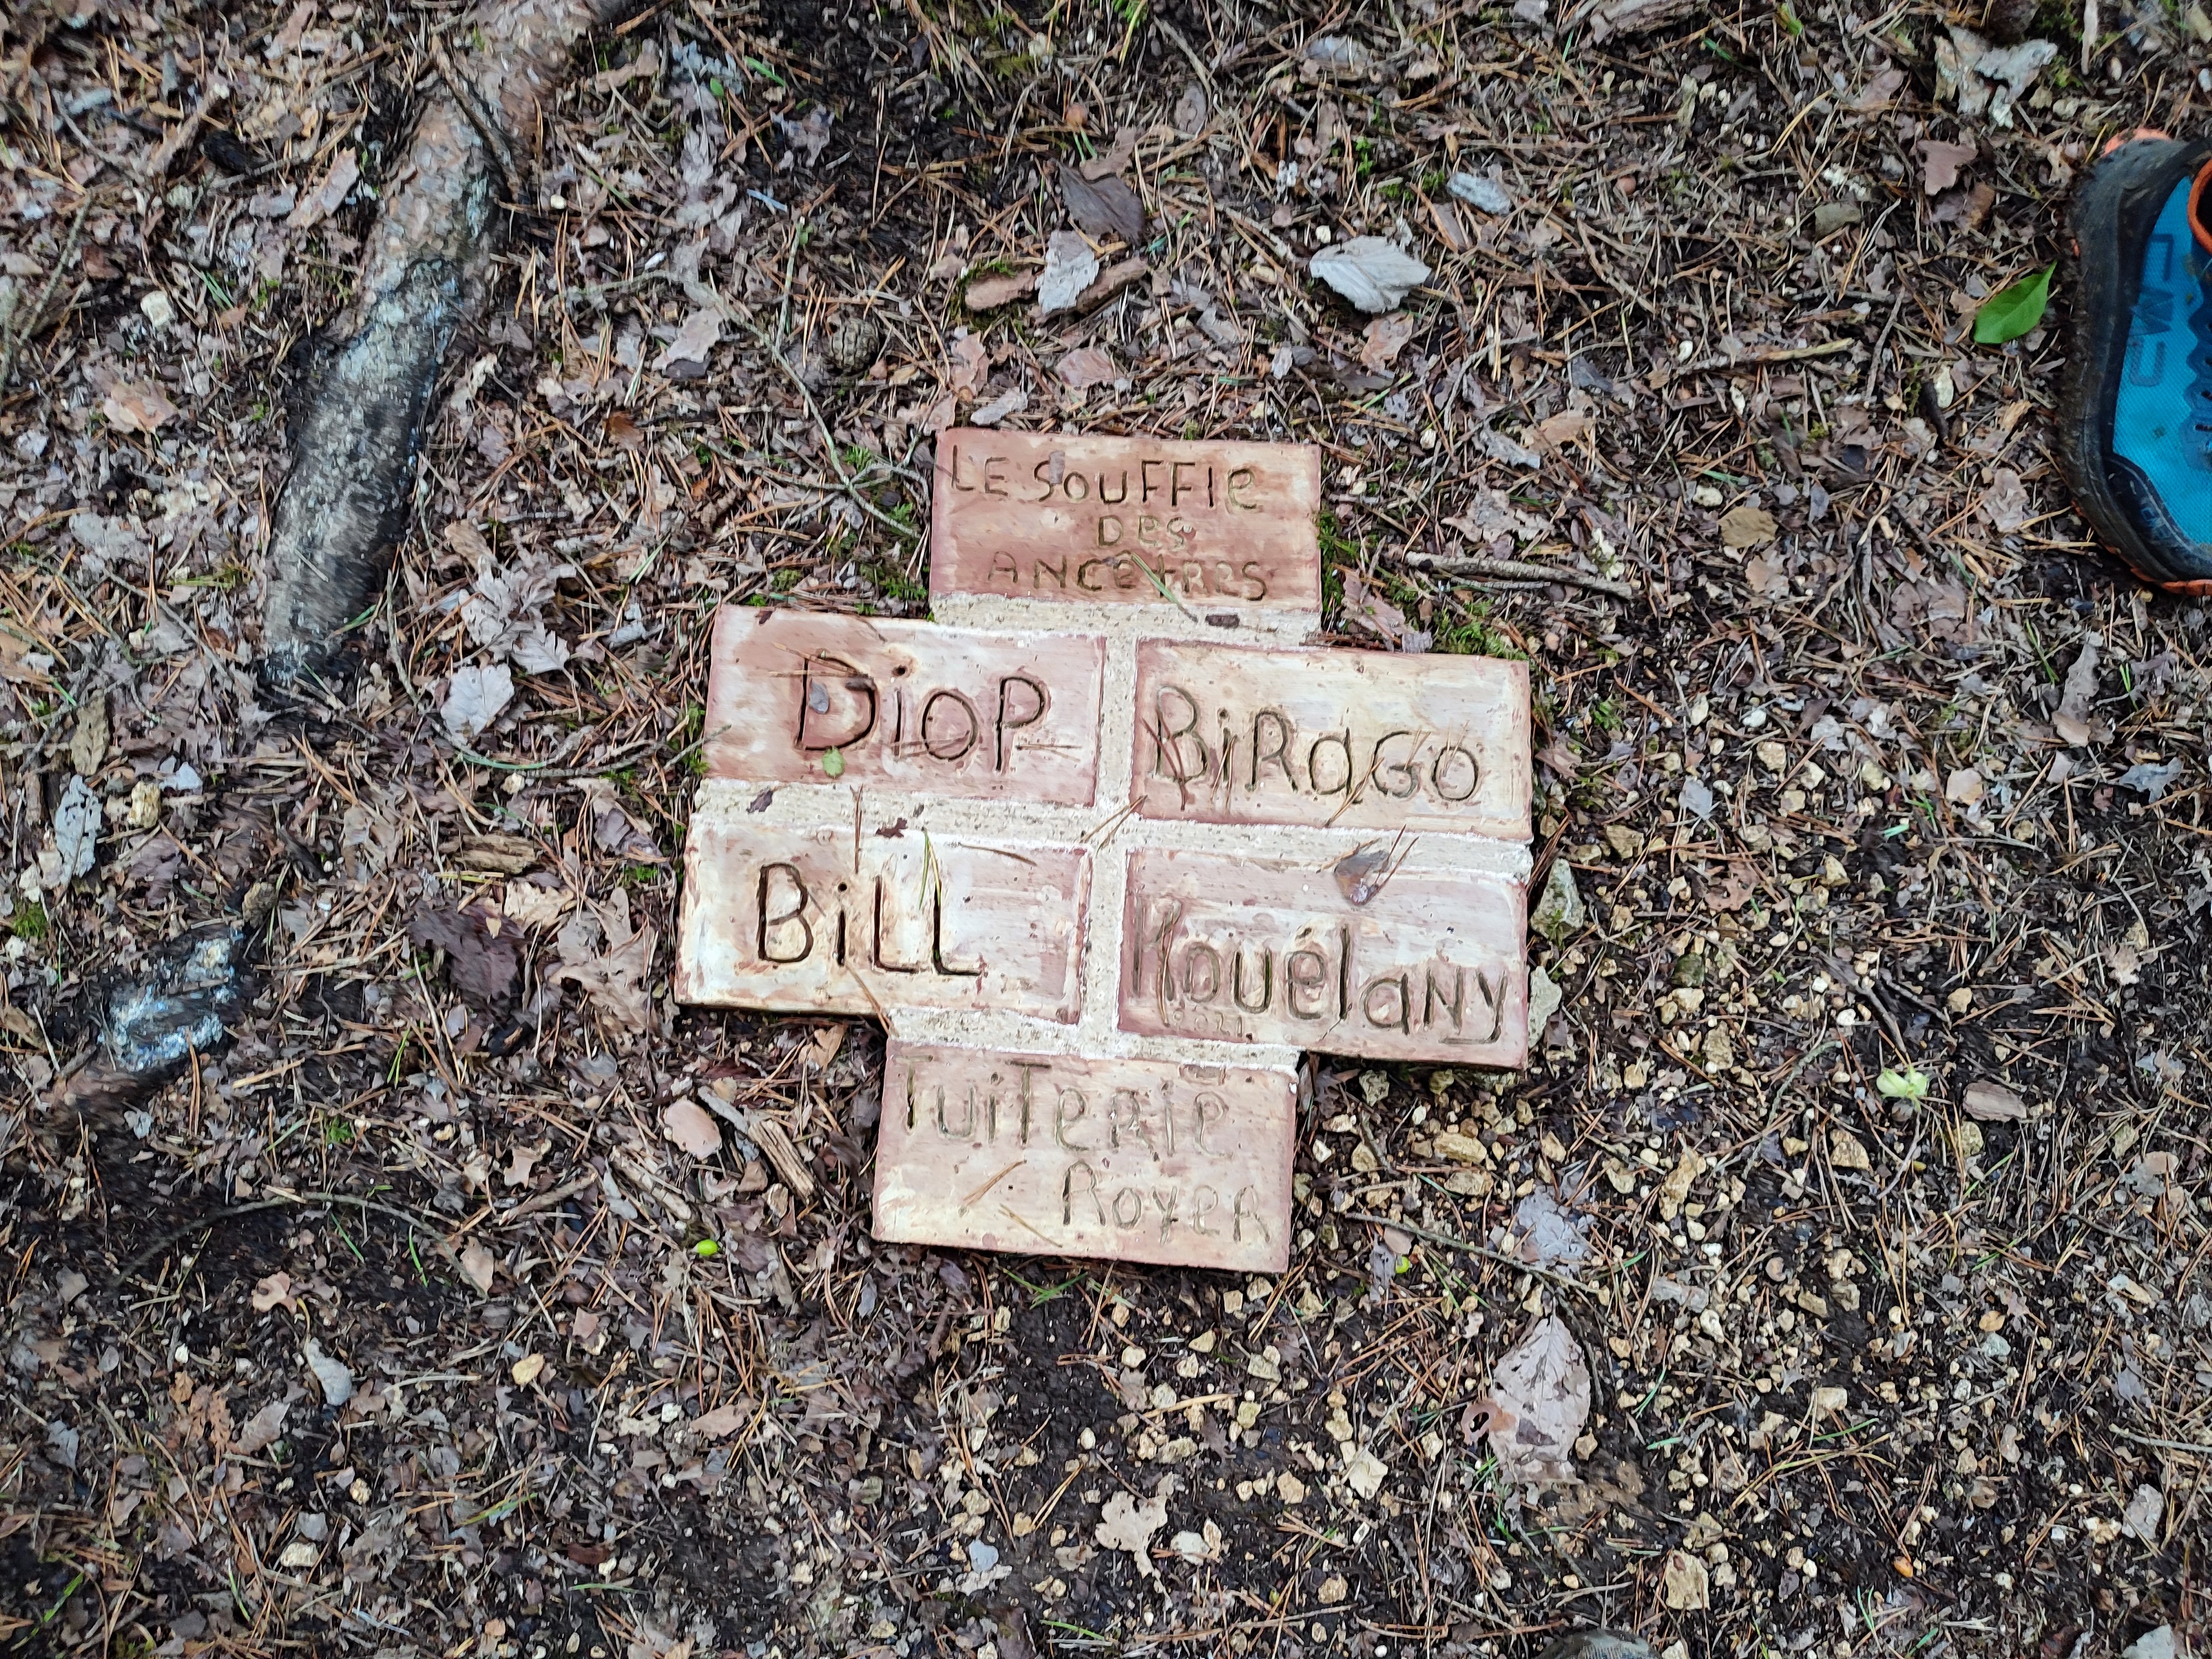 LE SOUFFlE
DES
ANCÊtRES
DiOP
BiRaGO
BiLL
Kouélany
2021
TuiTeRie
RoyeR
CMP